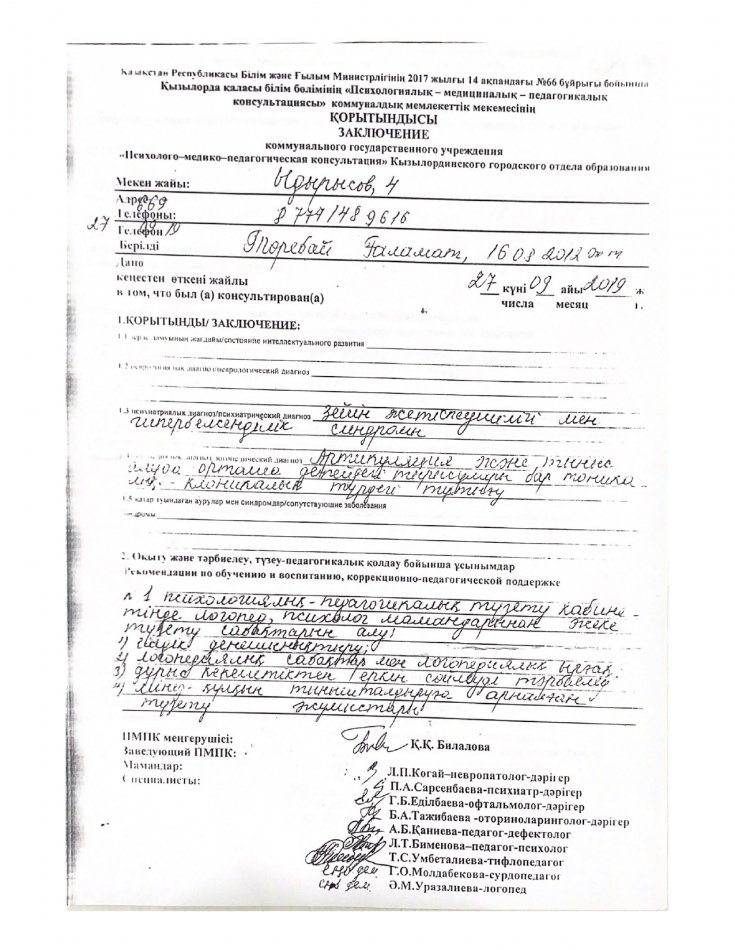 Қазақстан Республикасы Білім және Ғылым Министрлігінің 2017 жылғы 14 ақпандағы №66 бұйрығы бойынша
Қызылорда қаласы білім бөлімінің «Психологиялық – медициналық – педагогикалық
консультациясы» коммуналдық мемлекеттік мекемесінің
ҚОРЫТЫНДЫСЫ
ЗАКЛЮЧЕНИЕ
коммунального государственного учреждения
«Психолого–медико–педагогическая консультация» Кызылординского городского отдела образования
Мекен жайы: Ыдырысов, 4
Адрес:
669
Телефоны: 8 7771489616
27 09 19
Телефон
Берілді Төребай Ғаламат, 16 08 2012
Дано
кеңестен өткені жайлы 27 күні 09 айы 2019 ж
в том, что был (а) консультирован(а) числа месяц г.
1.ҚОРЫТЫНДЫ/ ЗАКЛЮЧЕНИЕ:
1.1 жағдайы/состояние интеллектуального развития
1.2 диагноз/неврологический диагноз
1.3 психиатриялық диагноз/психиатрический диагноз Зейін жетіспеушілігі мен
гипербелсенділік синдромы
диагноз Артикуляция және тыныс
алуда орташа деңгейдегі бар тоника-
лық - клоникалық түрдегі тұтығу
1.5 қатар туындаған аурулар мен синдромдар/сопутствующие заболевания
синдромы
2. Оқыту және тәрбиелеу, түзеу-педагогикалық қолдау бойынша ұсынымдар
Рекомендации по обучению и воспитанию, коррекционно-педагогической поддержке
1 психологиялық - педагогикалық түзету кабине-
тінде логопед, психолог мамандарынан жеке
түзету сабақтарын алу:
1)
2) логопедиялық сабақтар мен логопедиялық ырғақ
3) дұрыс еркін сөйлеуді тәрбиелеу
4) мінез - құлқын арналған
түзету жұмыстары
ПМПК меңгерушісі:
Заведующий ПМПК: Қ.Қ. Билалова
Мамандар:
Специалисты: Л.П.Когай–невропатолог-дәрігер
П.А.Сарсенбаева-психиатр-дәрігер
Г.Б.Еділбаева-офтальмолог-дәрігер
Б.А.Тажибаева -оториноларинголог-дәрігер
А.Б.Қаниева-педагог-дефектолог
Л.Т.Бименова–педагог-психолог
Т.С.Умбеталиева-тифлопедагог
Г.О.Молдабекова-сурдопедагог
Ә.М.Уразалиева-логопед